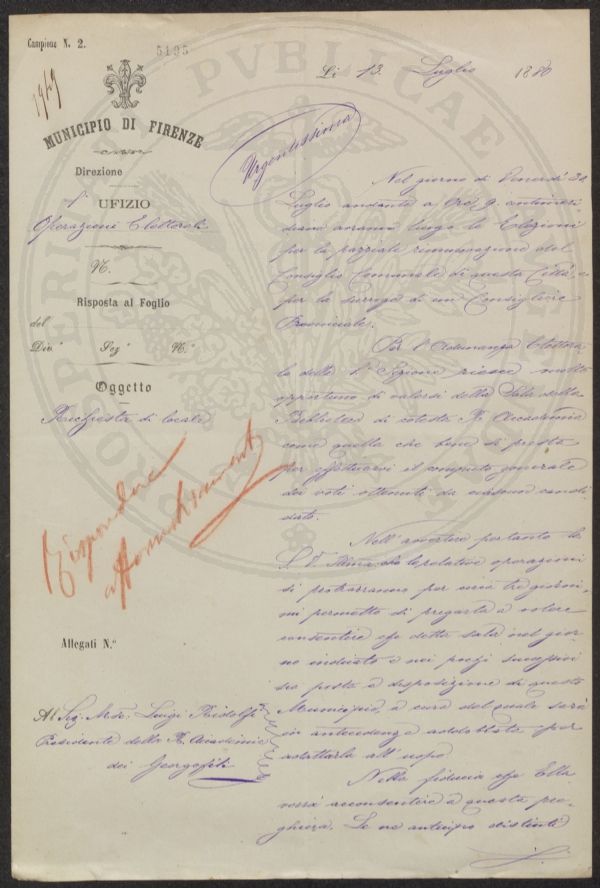 Campione N. 2.
5195
Li 13 Luglio 1880
1949
MUNICIPIO DI FIRENZE
Urgentissima
Direzione
1° UFIZIO
Operazioni Elettorali
N.
Risposta al Foglio
del
Div.e Sez.e N.°
Oggetto
Richiesta di locale
Rispondere
affermativamente
Allegati N.°
Al Sig. March. Luigi Ridolfi
Presidente della R. Accademia
dei Georgofili
Nel giorno di Venerdì 30
Luglio andante a Ore 9 antimeri-
diane avranno luogo le Elezioni
per la parziale rinnovazione del
Consiglio Comunale di questa Città, e
per la surroga di un Consigliere
Provinciale.
Per l'Adunanza Elettora-
le della 1a Sezione riesce molto
opportuno di valersi della Sala della
Biblioteca di cotesta R. Accademia
come quella che bene si presta
per effettuarvi il computo generale
dei voti ottenuti da ciascun candi-
dato.
Nell'avvertire pertanto la
S. V. Illma che le relative operazioni
si protrarranno per circa tre giorni,
mi permetto di pregarla a volere
consentire che detta sala nel gior-
no indicato e nei poi successivi
sia posta a disposizione di questo
Municipio, a cura del quale sarà
in antecedenza addobbata per
adattarla all'uopo.
Nella fiducia che Ella
vorrà acconsentire a questa pre-
ghiera, Le ne anticipo distinti
PROSPERITATI PVBLICAE AVGENDAE